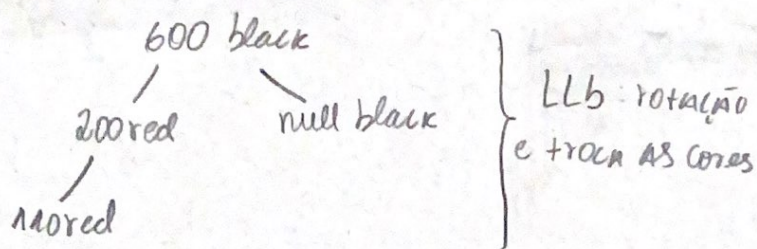 600 black
200red null black
110red
LLb rotação
e troca as cores